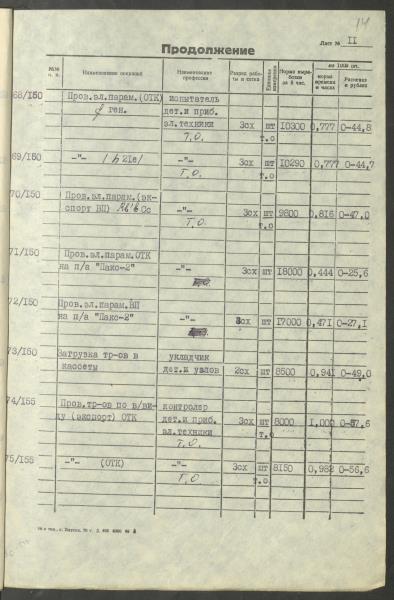 14
Продолжение
Лист № II
№№ п. п.
Наименование операций
Наименование профессии
Разряд работы и сетка
Единица измерения
Норма выработки за 8 час.
на 1000 шт.
норма времени в часах
Расценка в рублях
68/150 Пров.эл.парам.(ОТК) испытатель
ген. дет.и приб.
эл.техники 3сх шт 10300 0,777 0-44,8
Т.О. т.о
69/150 -"- /h21е/ -"- 3сх шт 10290 0,777 0-44,7
Т.О. т.о
70/150 Пров.эл.парам.(экспорт ВП) Сс -"- 3сх шт 9800 0,816 0-47,0
Т.О. т.о
71/150 Пров.эл.парам.ОТК
на п/а "Пакс-2" -"- 3сх шт 18000 0,444 0-25,6
72/150 Пров.эл.парам.ВП
на п/а "Пакс-2" -"- 3сх шт 17000 0,471 0-27,1
73/150 Загрузка тр-ов в укладчик
кассеты дет.и узлов 2сх шт 8500 0,941 0-49,0
74/155 Пров.тр-ов по в/ви- контролер
ду (экспорт) ОТК дет.и приб. 3сх шт 8000 1,000 0-57,6
эл.техники т.о
Т.О.
75/155 -"- (ОТК) -"- 3сх шт 8150 0,982 0-56,6
Т.О. т.о